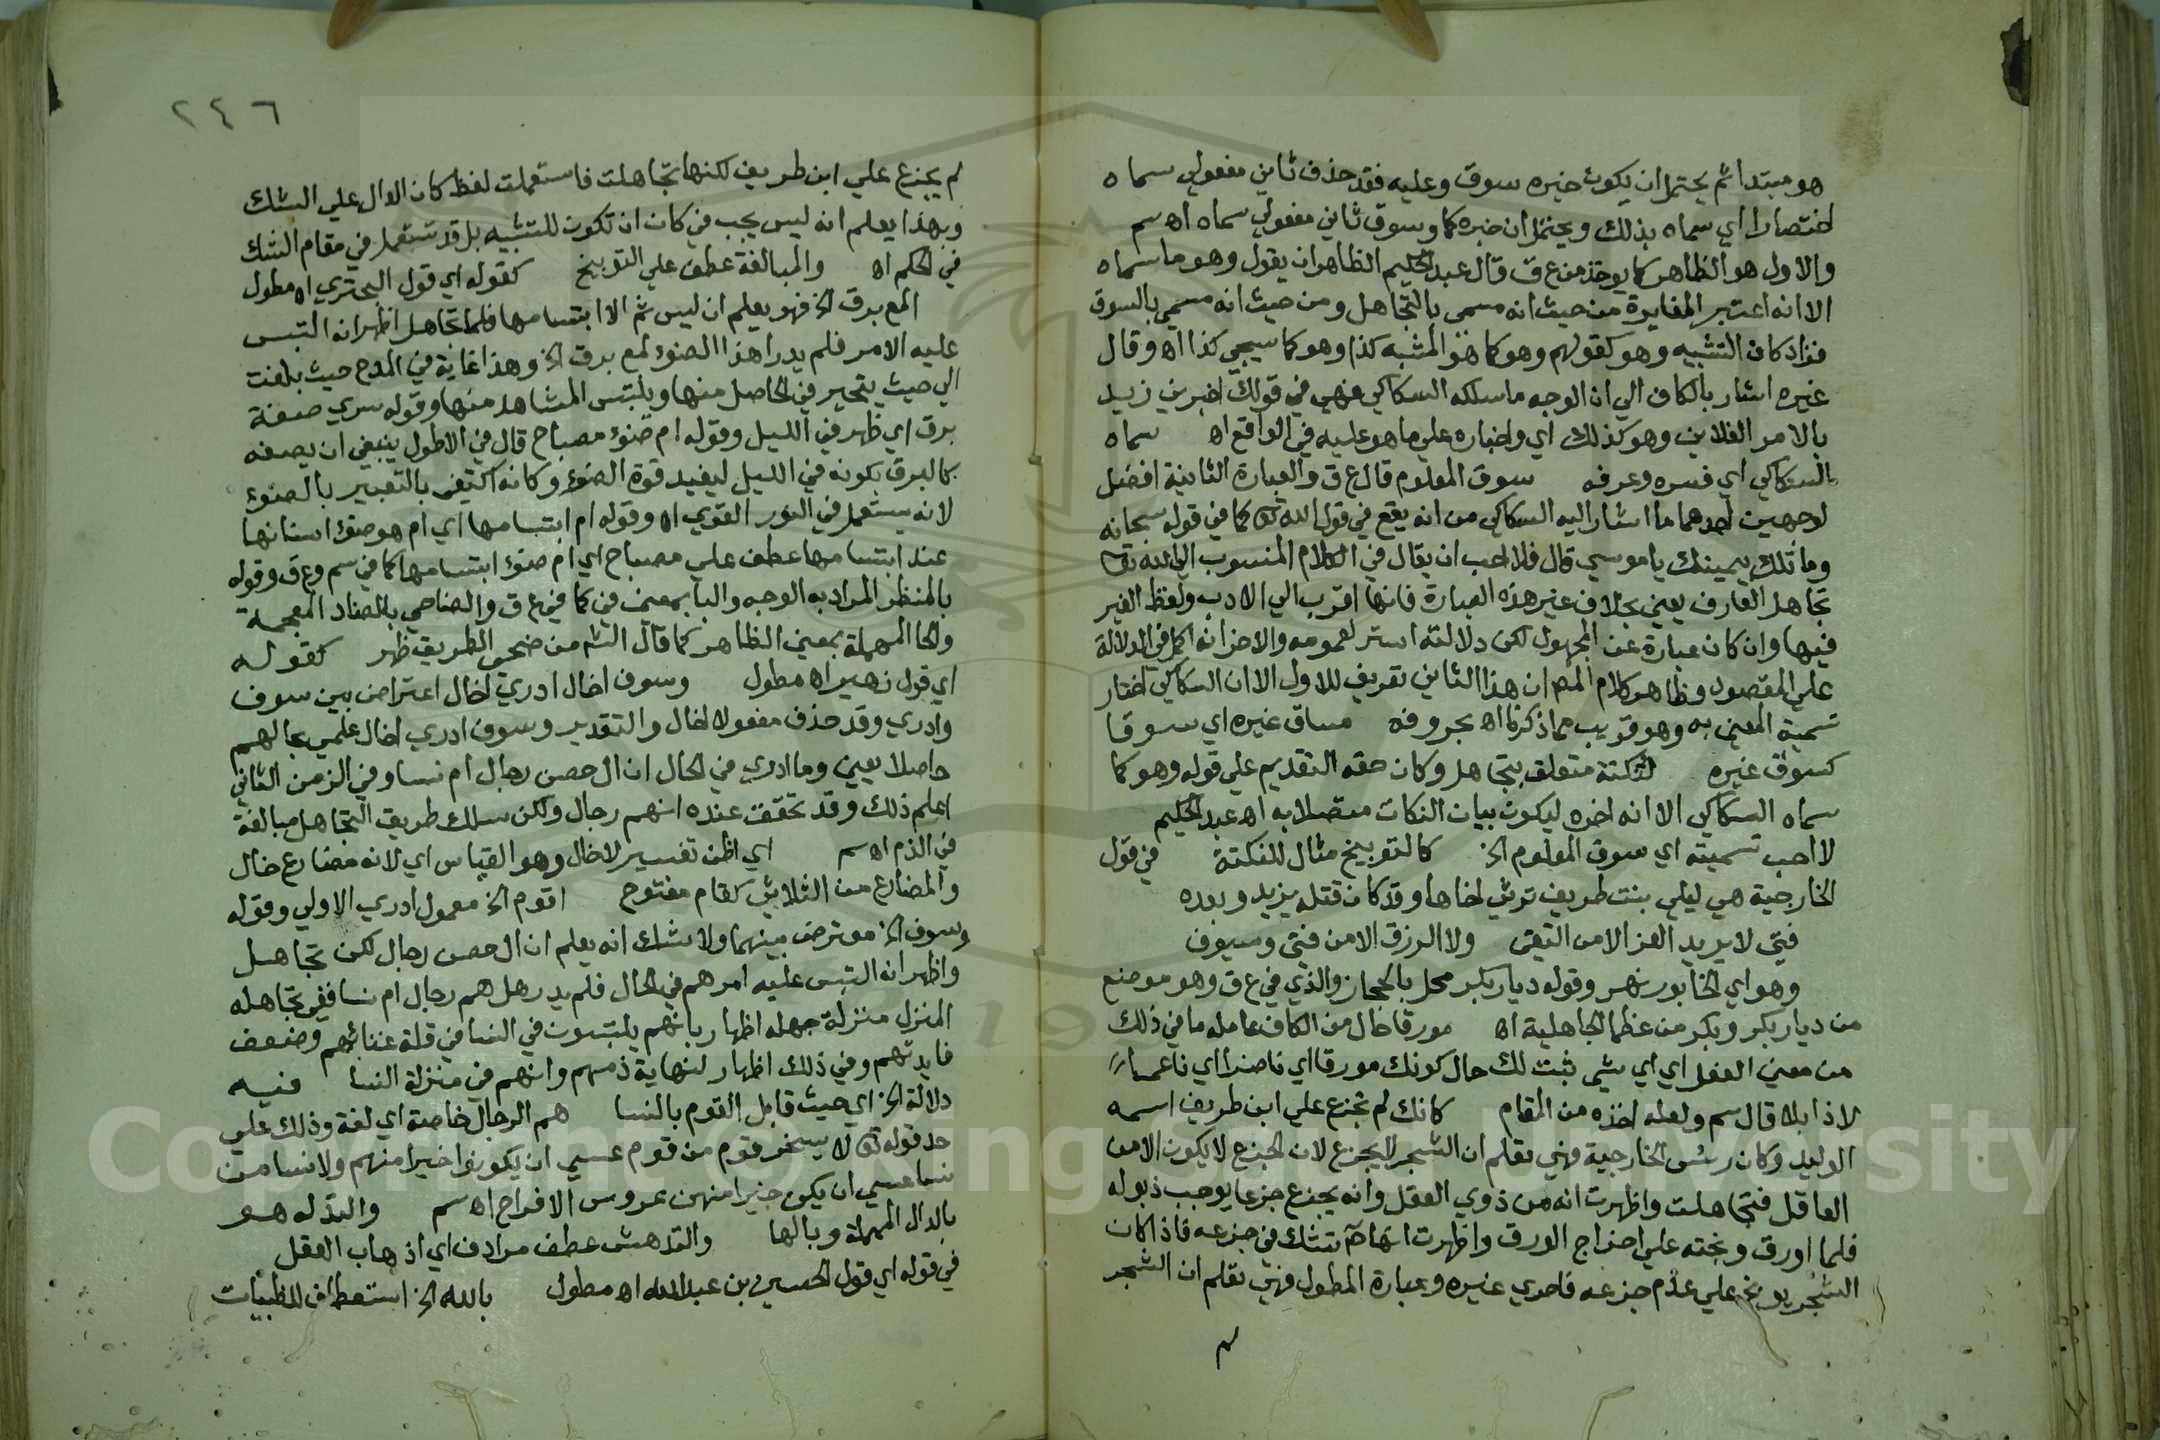 هو مبتدا ثم يحتمل ان يكون خبره سوق وعليه فقد حذف ثاني مفعولي سماه
اختصارا اي سماه بذلك ويحتمل ان خبره كما وسوق ثاني مفعولي سماه اه سم
والاول هو الظاهر كما يوخذ من ع ق قال عبد الحكيم الظاهر ان يقول وهو ما سماه
الا انه اعتبر المغايرة من حيث انه مسمى بالتجاهل ومن حيث انه مسمي بالسوق
فزاد كاف التشبيه وهو كقولهم وهو كما هو المشبه كذا وهو كما سيجي كذا اه وقال
غيره اشار بالكاف الي ان الوجه ما سلكه السكاكي فهي في قولك اخبرني زيد
بالامر الفلاني وهو كذلك اي واخباره علي ما هو عليه في الواقع اه سماه
السكاكي اي فسره وعرفه سوق المعلوم قال ع ق والعبارة الثانية افضل
لوجهين احدهما ما اشار اليه السكاكي من انه يقع في قول الله تعالى كما في قوله سبحانه
وما تلك بيمينك يا موسي قال فلا احب ان يقال في الكلام المنسوب الي الله تعالى
تجاهل العارف يعني بخلاف غير هذه العبارة فانها اقرب الي الادب ولفظ الغير
فيها وان كان عبارة عن المجهول لكن دلالته استر لعمومه والاخر انه اكمل في الدلالة
علي المقصود وظاهر كلام المص ان هذا الثاني تعريف للاول الا ان السكاكي اختار
تسمية المعني به وهو قريب مما ذكرناه اه بحروفه مساق غيره اي سوقا
كسوق غيره لنكتة متعلق بتجاهل وكان حقه التقديم علي قوله وهو كما
سماه السكاكي الا انه اخره ليكون بيان النكات متصلا به اه عبد الحكيم
لا احب تسميته اي سوق المعلوم الخ كالتوبيخ مثال للنكتة في قول
الخارجية هي ليلي بنت طريف ترثي اخاها وقد كان قتله يزيد وبعده
فتي لا يريد العز الا من التقي ولا الرزق الا من قني وسيوف
وهو اي الخابور نهر وقوله ديار بكر محل بالحجاز والذي في ع ق وهو موضع
من ديار بكر وبكر من عظما الجاهلية اه مورقا حال من الكاف عامله ما في ذلك
من معني الفعل اي اي شي ثبت لك حال كونك مورقا اي ناضرا اي ناعما
لا ذابلا قال سم ولعله اخذه من المقام كانك لم تجزع علي ابن طريف اسمه
الوليد وكان رئس الخارجية فهي تعلم ان الشجر لا يجزع لان الجزع لا يكون الا من
العاقل فتجاهلت واظهرت انه من ذوي العقل وانه يجزع جزعا يوجب ذبوله
فلما اورق وبخته علي اخراج الورق واظهرت انها تشك في جزعه فاذا كان
الشجر يوبخ علي عدم جزعه فاحري غيره وعبارة المطول فهي تعلم ان الشجر
٢٤٦
لم يجزع علي ابن طريف لكنها تجاهلت فاستعملت لفظ كان الدال علي الشك
وبهذا يعلم انه ليس يجب في كان ان تكون للتشبيه بل قد تستعمل في مقام الشك
في الحكم اه والمبالغة عطف علي التوبيخ كقوله اي قول البحتري اه مطول
المع برق الخ فهو يعلم ان ليس ثم الا ابتسامها فلما تجاهل اظهر انه التبس
عليه الامر فلم يدر اهذا الضوء لمع برق الخ وهذا غاية في المدح حيث بلغت
الي حيث يتحير في الحاصل منها ويلتبس المشاهد منها وقوله سري صفة
برق اي ظهر في الليل وقوله ام ضوء مصباح قال في الاطول ينبغي ان يصفه
كالبرق بكونه في الليل ليفيد قوة الضوء وكانه اكتفي بالتعبير بالضوء
لانه يستعمل في النور القوي اه وقوله ام ابتسامها اي ام هو ضوء اسنانها
عند ابتسامها عطف علي مصباح اي ام ضوء ابتسامها كما في سم وع ق وقوله
بالمنظر المراد به الوجه والبا بمعني في كما في ع ق والضاحي بالضاد المعجمة
والحا المهملة بمعني الظاهر كما قال الش من ضحي الطريق ظهر كقوله
اي قول زهير اه مطول وسوف اخال ادري اخال اعتراض بين سوف
وادري وقد حذف مفعولا اخال والتقدير وسوف ادري اخال علمي بحالهم
حاصلا يعني وما ادري في الحال ان ال حصن رجال ام نسا وفي الزمن الثاني
اعلم ذلك وقد تحققت عنده انهم رجال ولكن سلك طريق التجاهل مبالغة
في الذم اه سم اي اظن تفسير لاخال وهو القياس اي لانه مضارع خال
والمضارع من الثلاثي كقام مفتوح اقوم الخ معمول ادري الاولي وقوله
وسوف الخ معترض بينهما ولا شك انه يعلم ان ال حصن رجال لكن تجاهل
واظهر انه التبس عليه امرهم في الحال فلم يدر هل هم رجال ام نسا ففي تجاهله
المنزل منزلة جهله اظهار بانهم يلتبسون في النسا في قلة غنائهم وضعف
فايدتهم وفي ذلك اظهار لنهاية ذمهم وانهم في منزلة النسا فيه
دلالة الخ اي حيث قابل القوم بالنسا هم الرجال خاصة اي لغة وذلك علي
حد قوله تعالى لا يسخر قوم من قوم عسي ان يكونوا خيرا منهم ولا نسا من
نسا عسي ان يكن خيرا منهن عروس الافراح اه سم والتدله هو
بالدال المهملة وبالها والتدهش عطف مرادف اي اذهاب العقل
في قوله اي قول الحسين بن عبد الله اه مطول بالله الخ استعطاف للظبيات
Copyright © King Saud University